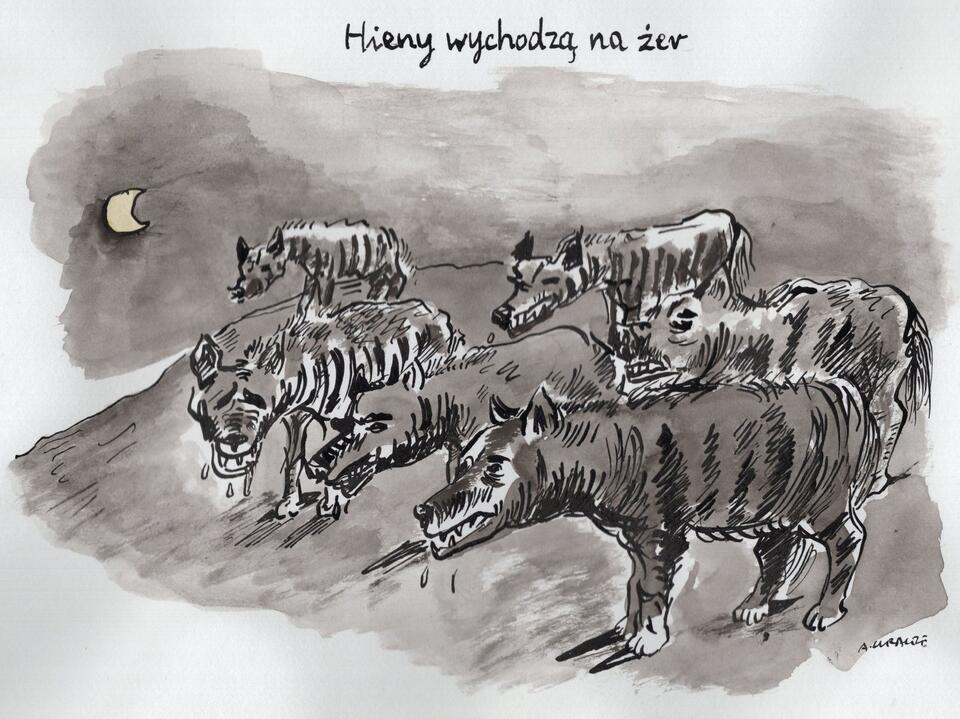 Hieny wychodzą na żer
A. KRAUZE